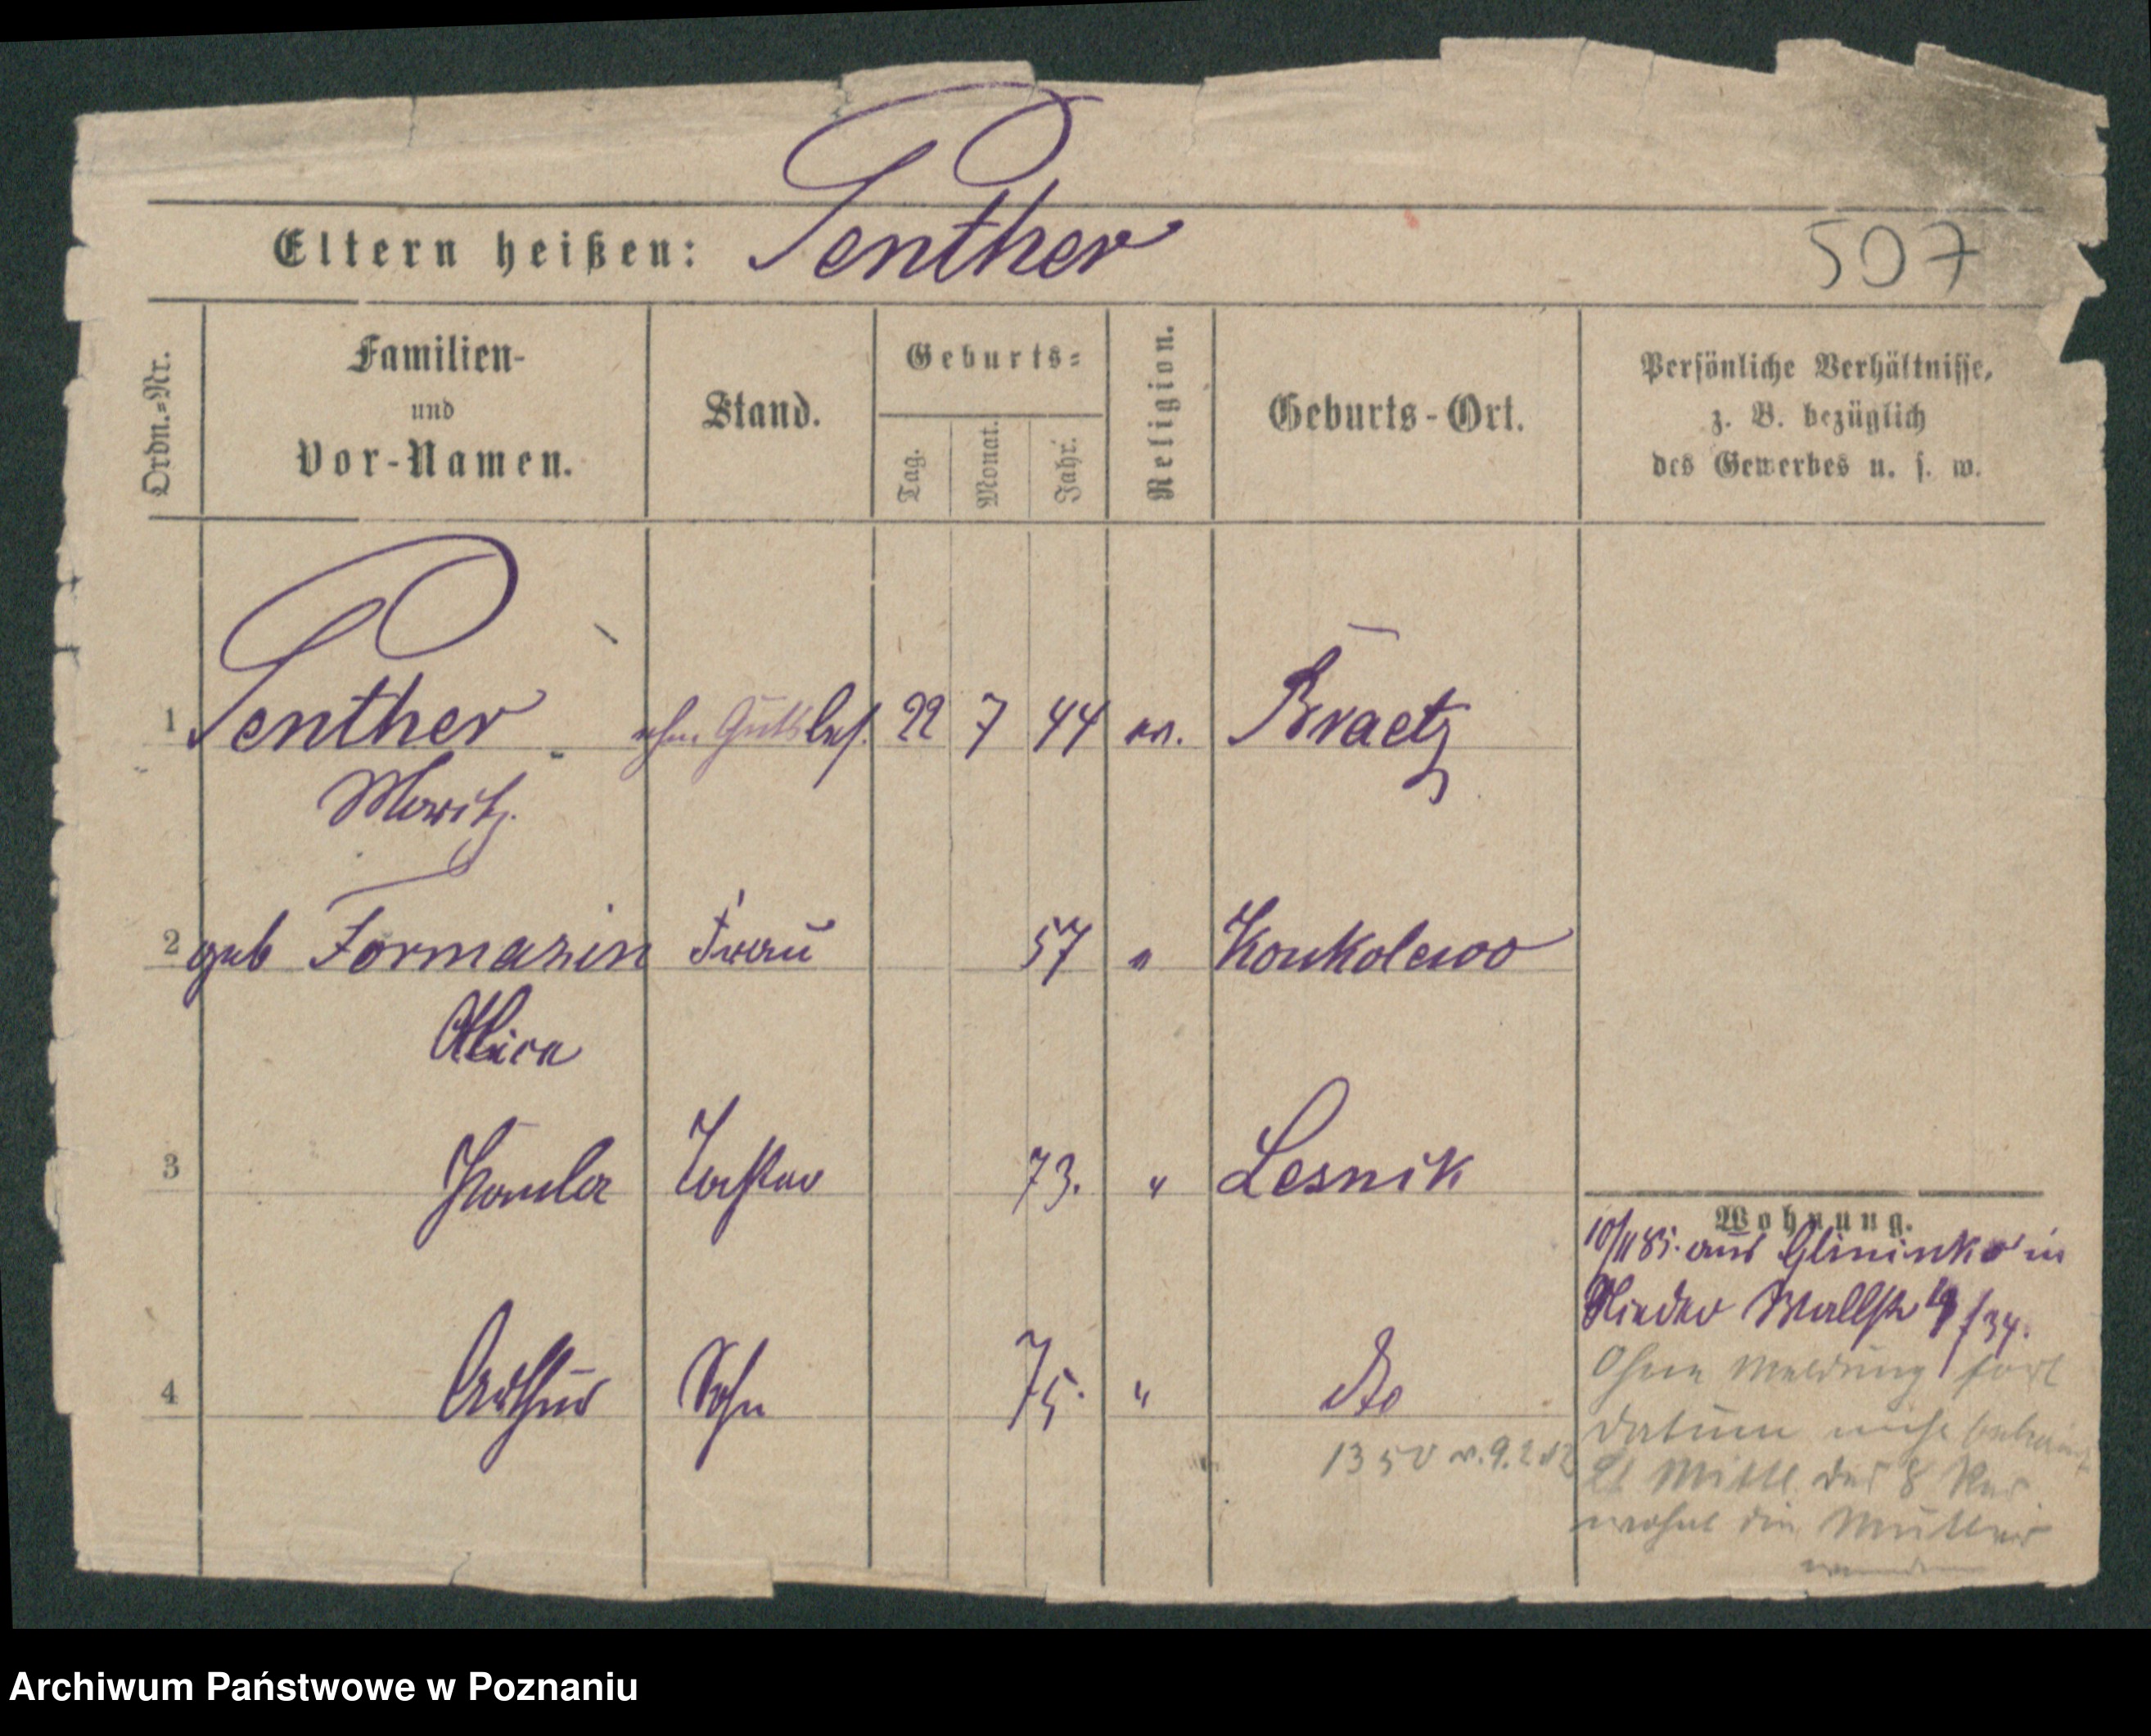 Eltern heißen: Penther
507
Ordn.-Nr.
Familien-
und
Vor-Namen.
Stand.
Geburts-
Tag.
Monat.
Jahr.
Religion.
Geburts-Ort.
Persönliche Verhältnisse,
z. B. bezüglich
des Gewerbes u. s. w.
1 Penther ehm. Gutsbes. 22 7 44 ev. Braetz
Moritz
2 geb Formazin Frau 57 " Konkolewo
3 Tochter 73. " Lesnik
4 Arthur Sohn 75. " dto
Wohnung.
10/11 85. aus Glinienko in
Nieder Wallstr 4/34.
Ohne Meldung fort
Datum nicht bekannt
1350 v. 9.2
Lt Mittl. des 8 Rev.
wohnt die Mutter
Archiwum Państwowe w Poznaniu